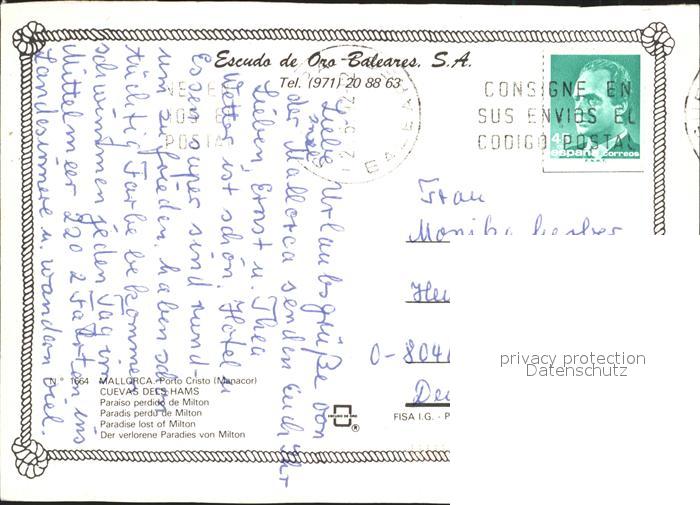 Escudo de Oro-Baleares, S.A.
Tel. (971) 20 88 63
CONSIGNE EN
SUS ENVIOS EL
CODIGO POSTAL
españa correos
Liebe Urlaubsgrüße von
der Insel Mallorca senden Euch Ihr
Lieben, Ernst u. Thea
Wetter ist schön. Hotel u
Essen super sind rund-
um zufrieden. haben schon
tüchtig Farbe bekommen
schwimmen jeden Tag im
Mittelmeer 22° 2 Fahrten ins
Landesinnere u. wandern viel.
Frau
Monika
O-804
N° 1664 MALLORCA. Porto Cristo (Manacor)
CUEVAS DELS HAMS
Paraiso perdido de Milton
Paradis perdu de Milton
Paradise lost of Milton
Der verlorene Paradies von Milton
ESCUDO DE ORO
®
FISA I.G. - P
privacy protection
Datenschutz